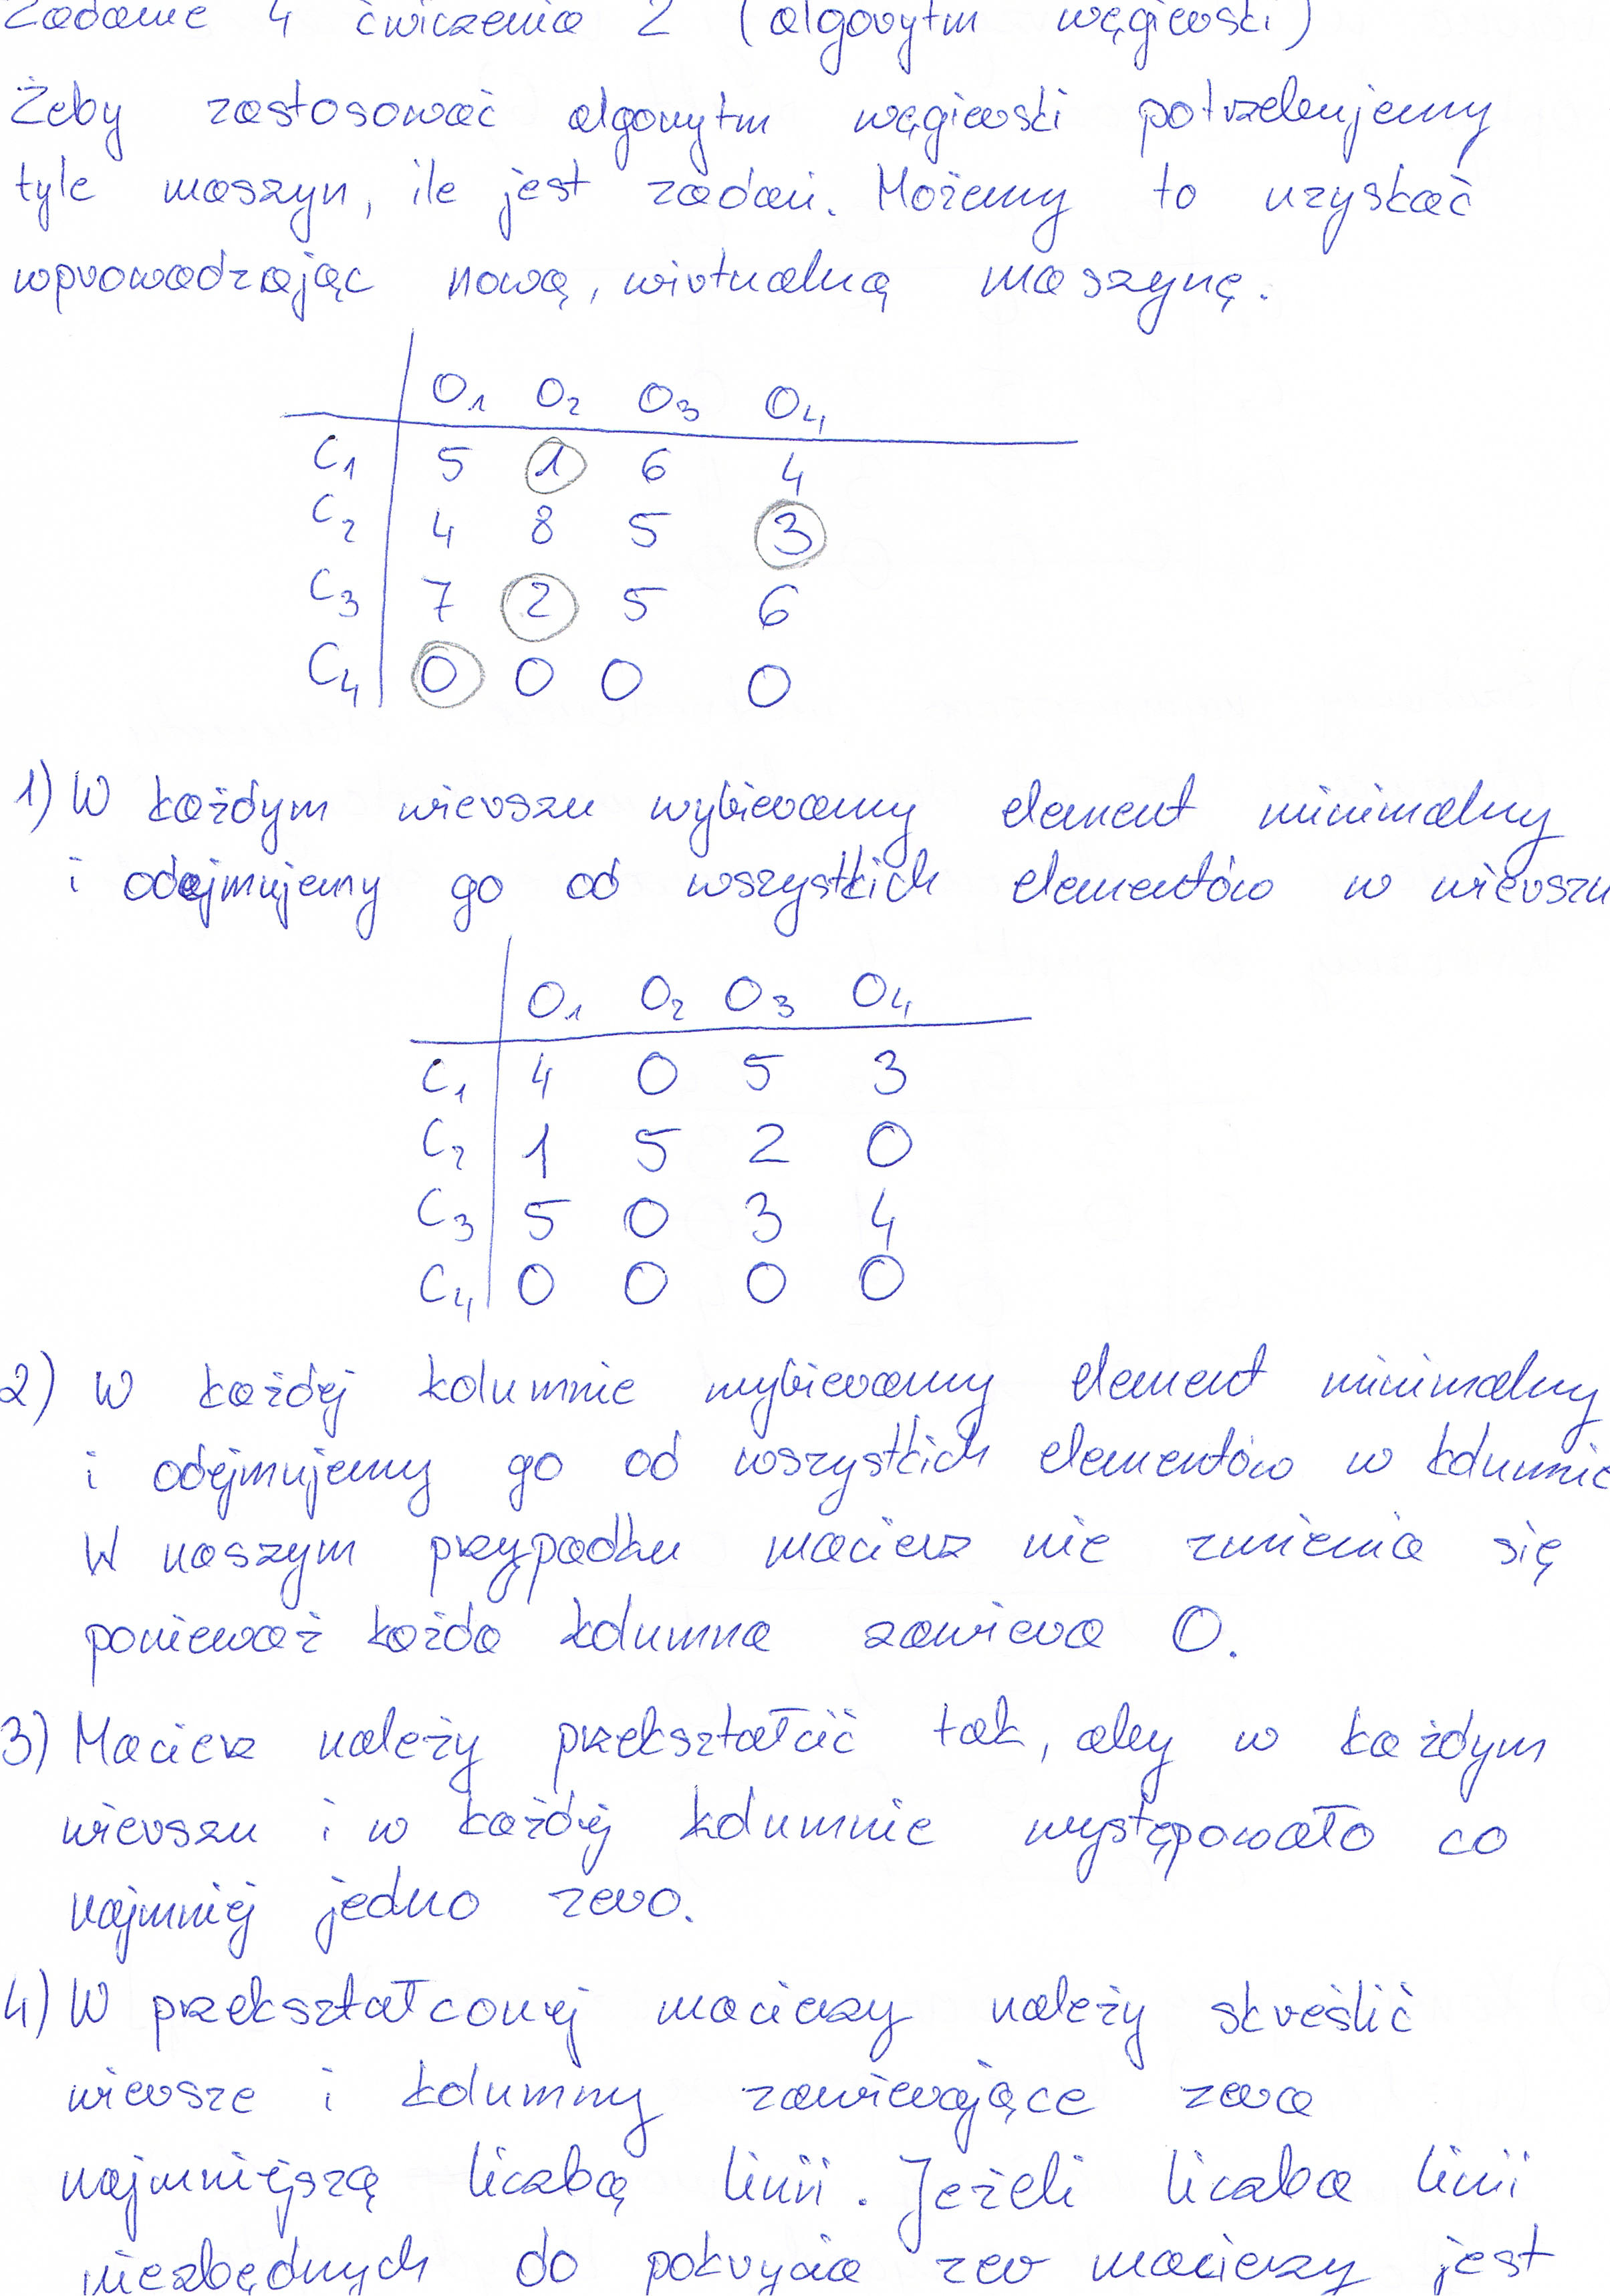 Zadanie 4 ćwiczenia 2 (algorytm węgierski)
Żeby zastosować algorytm węgierski potrzebujemy
tyle maszyn, ile jest zadań. Możemy to uzyskać
wprowadzając nową, wirtualną maszynę.
O1 O2 O3 O4
C1 5 1 6 4
C2 4 8 5 3
C3 7 2 5 6
C4 0 0 0 0
1) W każdym wierszu wybieramy element minimalny
i odejmujemy go od wszystkich elementów w wierszu
O1 O2 O3 O4
C1 4 0 5 3
C2 1 5 2 0
C3 5 0 3 4
C4 0 0 0 0
2) W każdej kolumnie wybieramy element minimalny
i odejmujemy go od wszystkich elementów w kolumnie
W naszym przypadku macierz nie zmienia się
ponieważ każda kolumna zawiera 0.
3) Macierz należy przekształcić tak, aby w każdym
wierszu i w każdej kolumnie występowało co
najmniej jedno zero.
4) W przekształconej macierzy należy skreślić
wiersze i kolumny zawierające zera
najmniejszą liczbą linii. Jeżeli liczba linii
niezbędnych do pokrycia zer macierzy jest